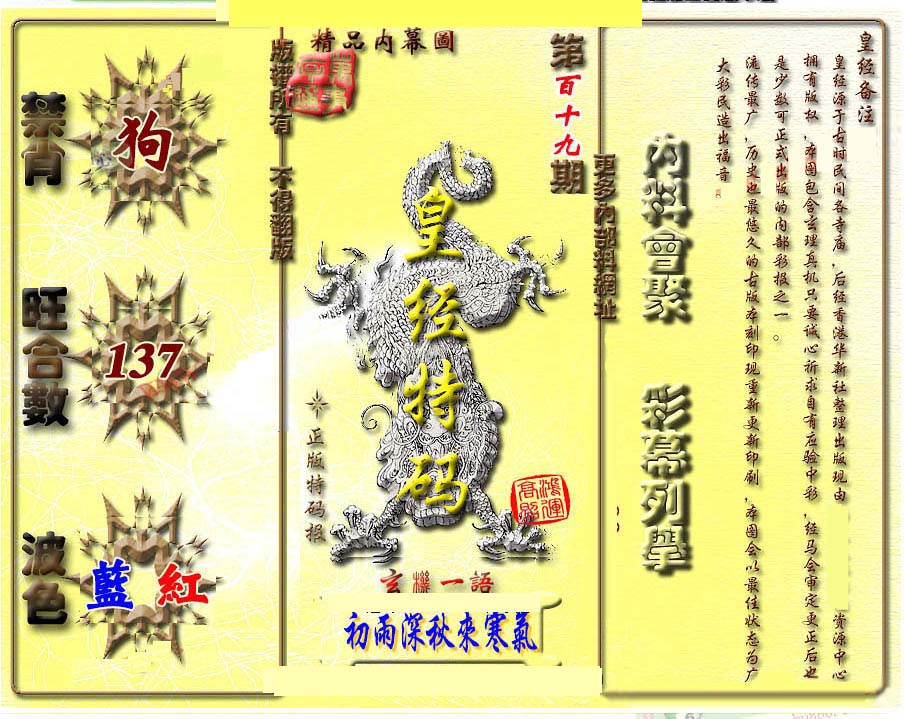 皇经备注
皇经源于古时民间各寺庙,后经香港华新社整理出版现由
资源中心
拥有版权,本图包含玄理真机只要诚心祈求自有应验中彩,经马会审定更正后也
是少数可正式出版的内部彩报之一。
流传最广,历史也最悠久的古版本刻印现重新更新印刷,本图会以最佳状态为广
大彩民造出福音
内料會聚
彩幕列舉
更多內部料網址
第百十九期
精品内幕圖
皇经特码
鴻運高照
正版特码报
玄機一語
初雨深秋來寒氣
版權所有 不得翻版
禁肖
狗
旺合數
137
波色
藍 紅